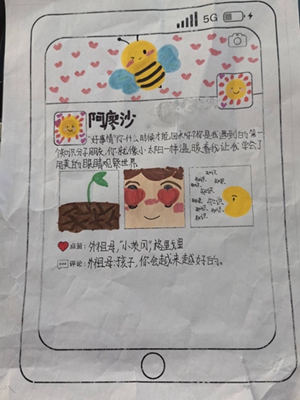 5G
阿廖沙
"好事情"你什么时候才能回来呀?你是我遇到的第一
个知识分子朋友,你就像小太阳一样温暖着我让我学会了
用真的眼睛观察世界
点赞:外祖母,"小茨冈",格里戈里
评论:外祖母:孩子,你会越来越好的。